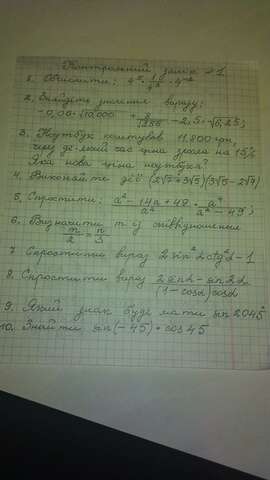 Контрольний залік №1
1. Обчислити: 4⁵ · 1/4³ · 4⁻²
2. Знайдіть значення виразу:
-0,06 · √10000 + ⁸√256 - 2,5 · √6,25;
3. Ноутбук коштував 11800 грн,
через деякий час ціна зросла на 15%
Яка нова ціна ноутбука?
4. Виконайте дії (2√7+3√5)(3√5-2√7)
5. Спростити: a²-14a+49 / a⁴ · a⁴ / a²-49;
6. Визначити m із співвідношення
m/2 = n/3
7 Спростити вираз 2sin²α ctg²α-1
8. Спростити вираз 2sinα-sin2α / (1-cosα)cosα
9. Який знак буде мати sin 2045°
10. Знайти sin(-45)+cos45